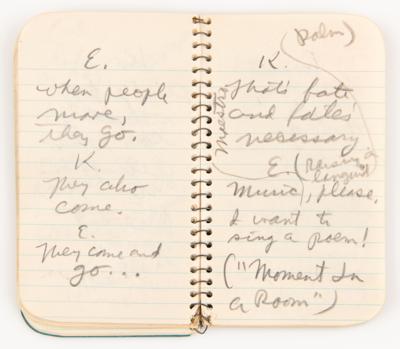 E.
when people
move,
they go.
K.
They also
come.
E.
They come and
go...
(palm)
K.
That's fate
and
necessary
Maestro
E. (Raising a
languid
Music, please.
I want to
sing a poem!
("Moment In
a Room")